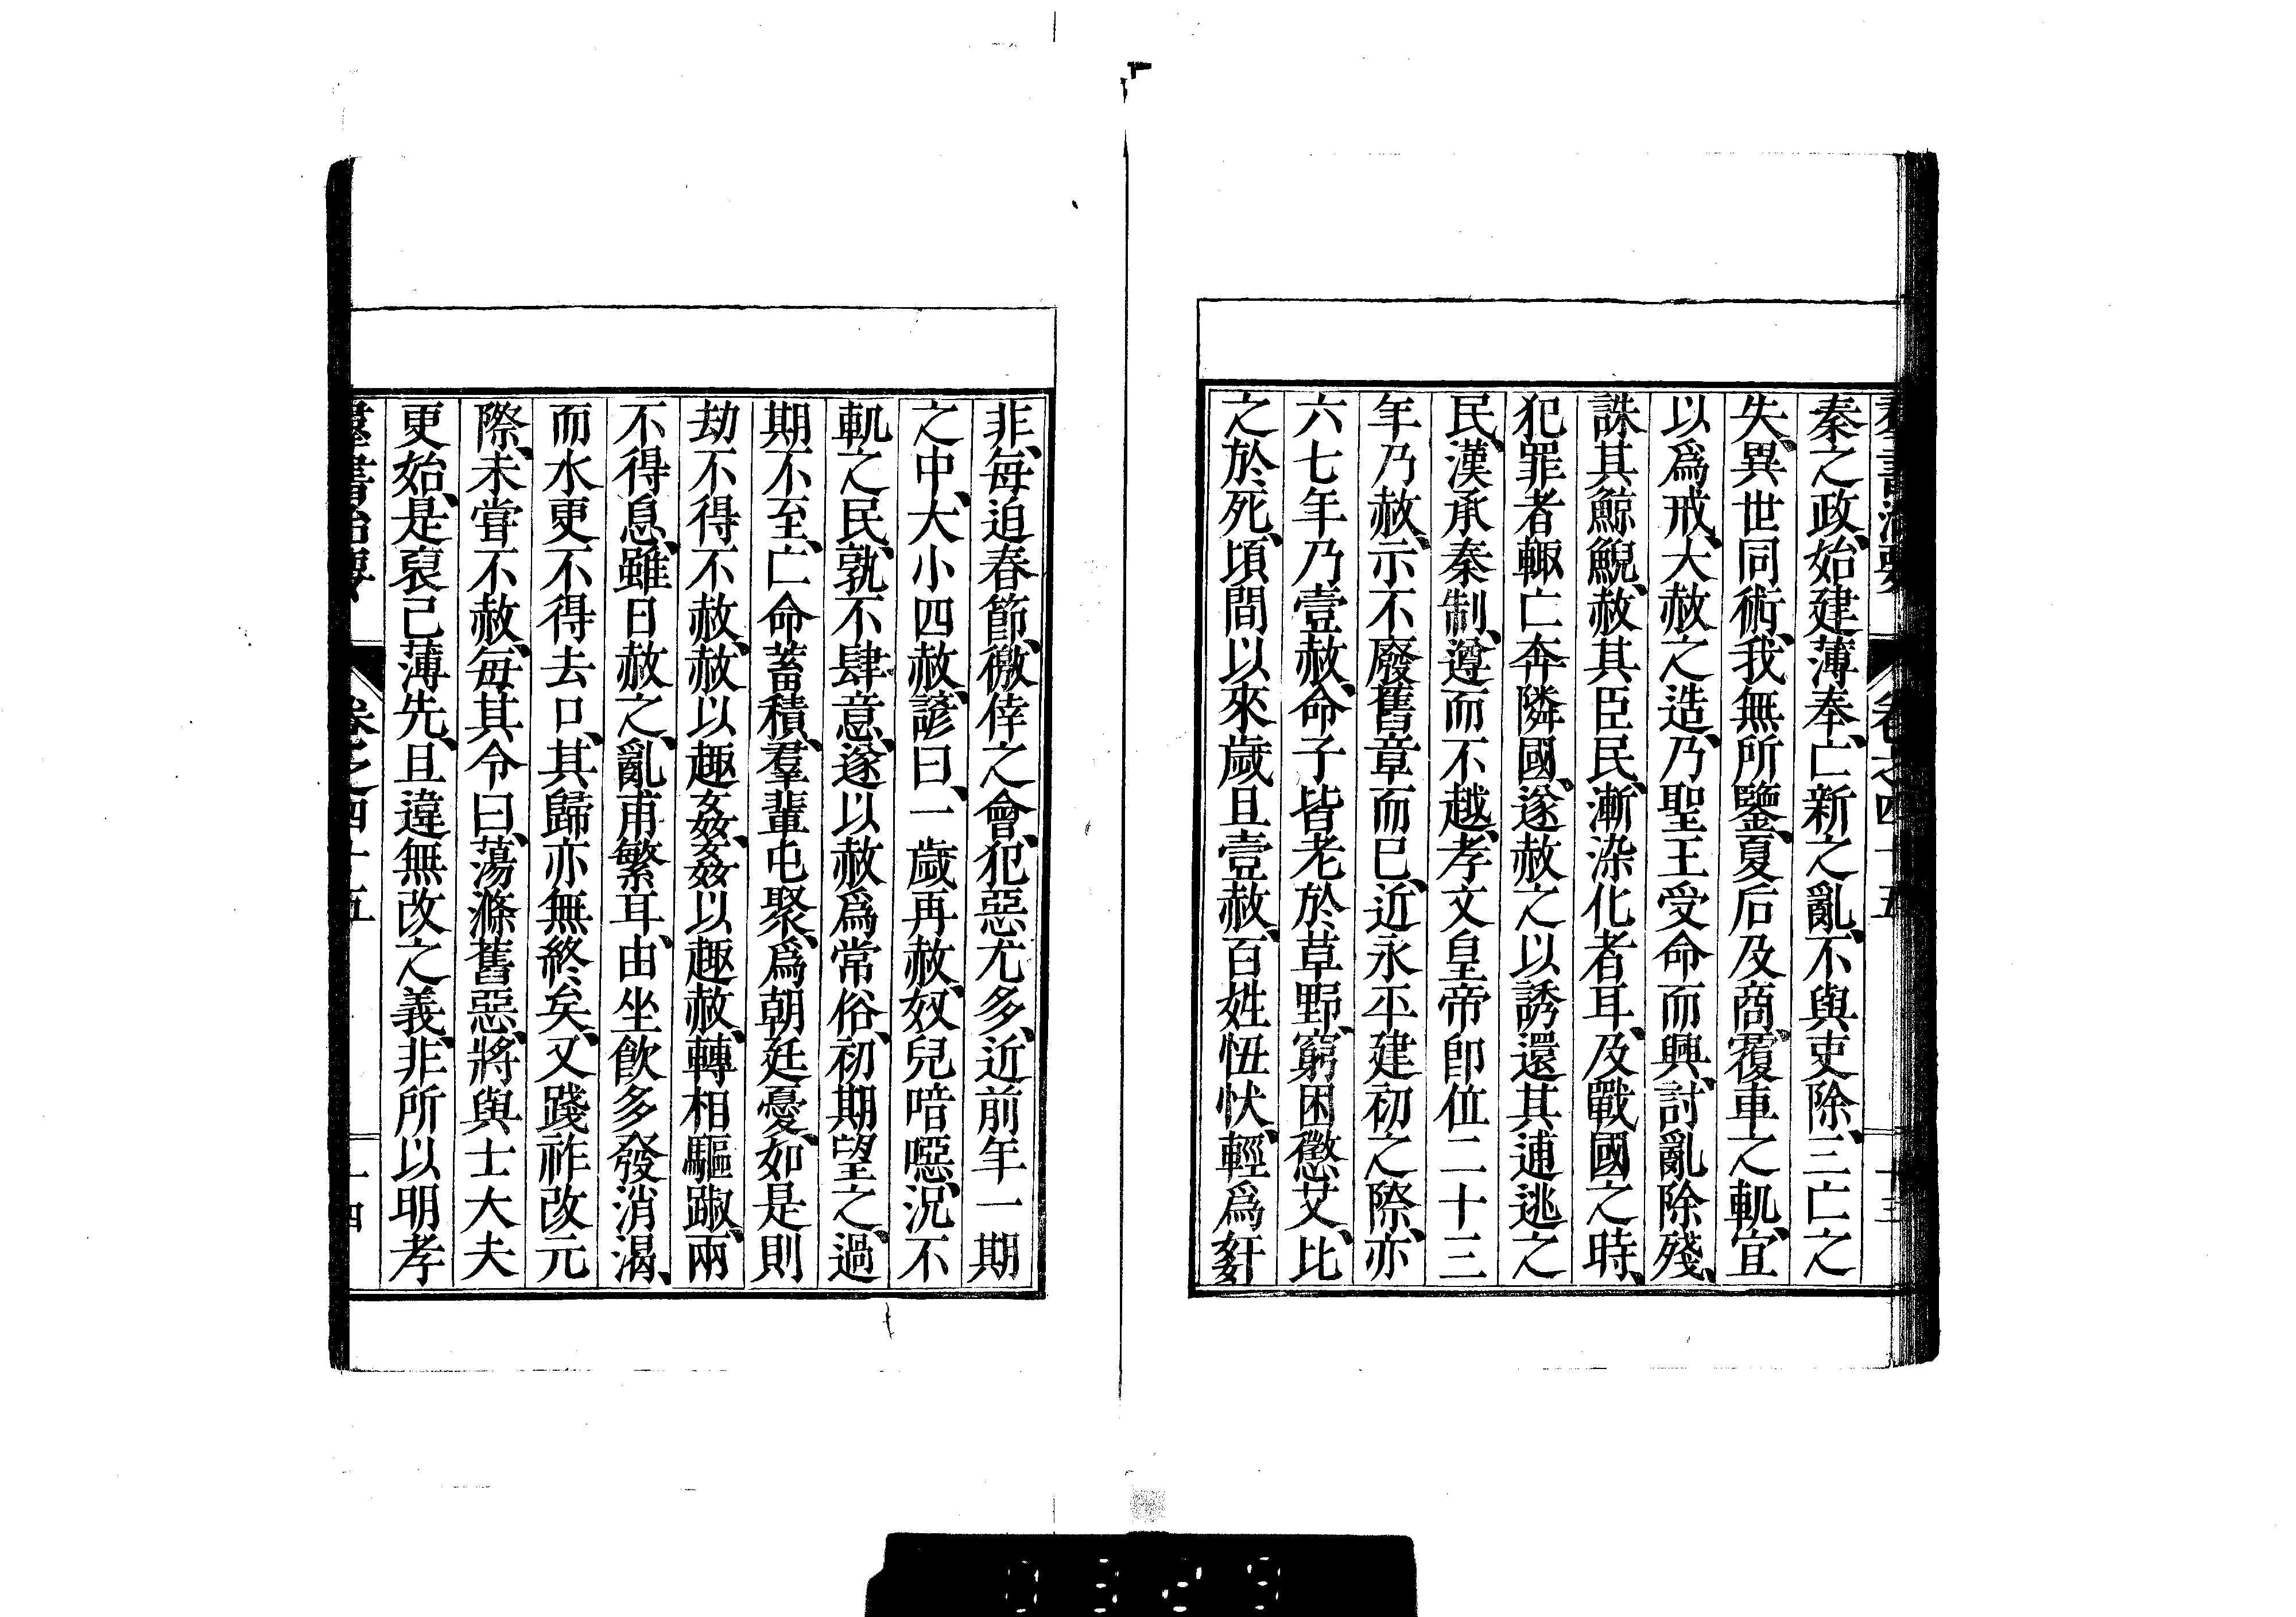 秦之政、始建薄奉、亡新之亂、不與吏除、三亡之
失、異世同術、我無所鑒、夏后及商、覆車之軌、宜
以爲戒、大赦之造、乃聖王受命而興、討亂除殘、
誅其鯨鯢、赦其臣民、漸染化者耳、及戰國之時、
犯罪者輙亡奔隣國、遂赦之以誘還其逋逃之
民、漢承秦制、遵而不越、孝文皇帝卽位二十三
年乃赦、示不廢舊章而已、近永平建初之際、亦
六七年乃壹赦、命子皆老於草野、窮困懲艾、比
之於死、頃間以來歲且壹赦、百姓忸忕、輕爲姧
非、每迫春節、徼倖之會、犯惡尤多、近前年一期
之中、大小四赦、諺曰、一歲再赦、奴兒喑噁、況不
軌之民、孰不肆意、遂以赦爲常俗、初期望之、過
期不至、亡命蓄積、羣輩屯聚、爲朝廷憂、如是則
劫不得不赦、赦以趣姦、姦以趣赦、轉相驅踧、兩
不得息、雖日赦之、亂甫繁耳、由坐飮多發消渴、
而水更不得去口、其歸亦無終矣、又踐祚改元
際、未嘗不赦、每其令曰、蕩滌舊惡、將與士大夫
更始、是裒己薄先、且違無改之義、非所以明孝
卷之四十五